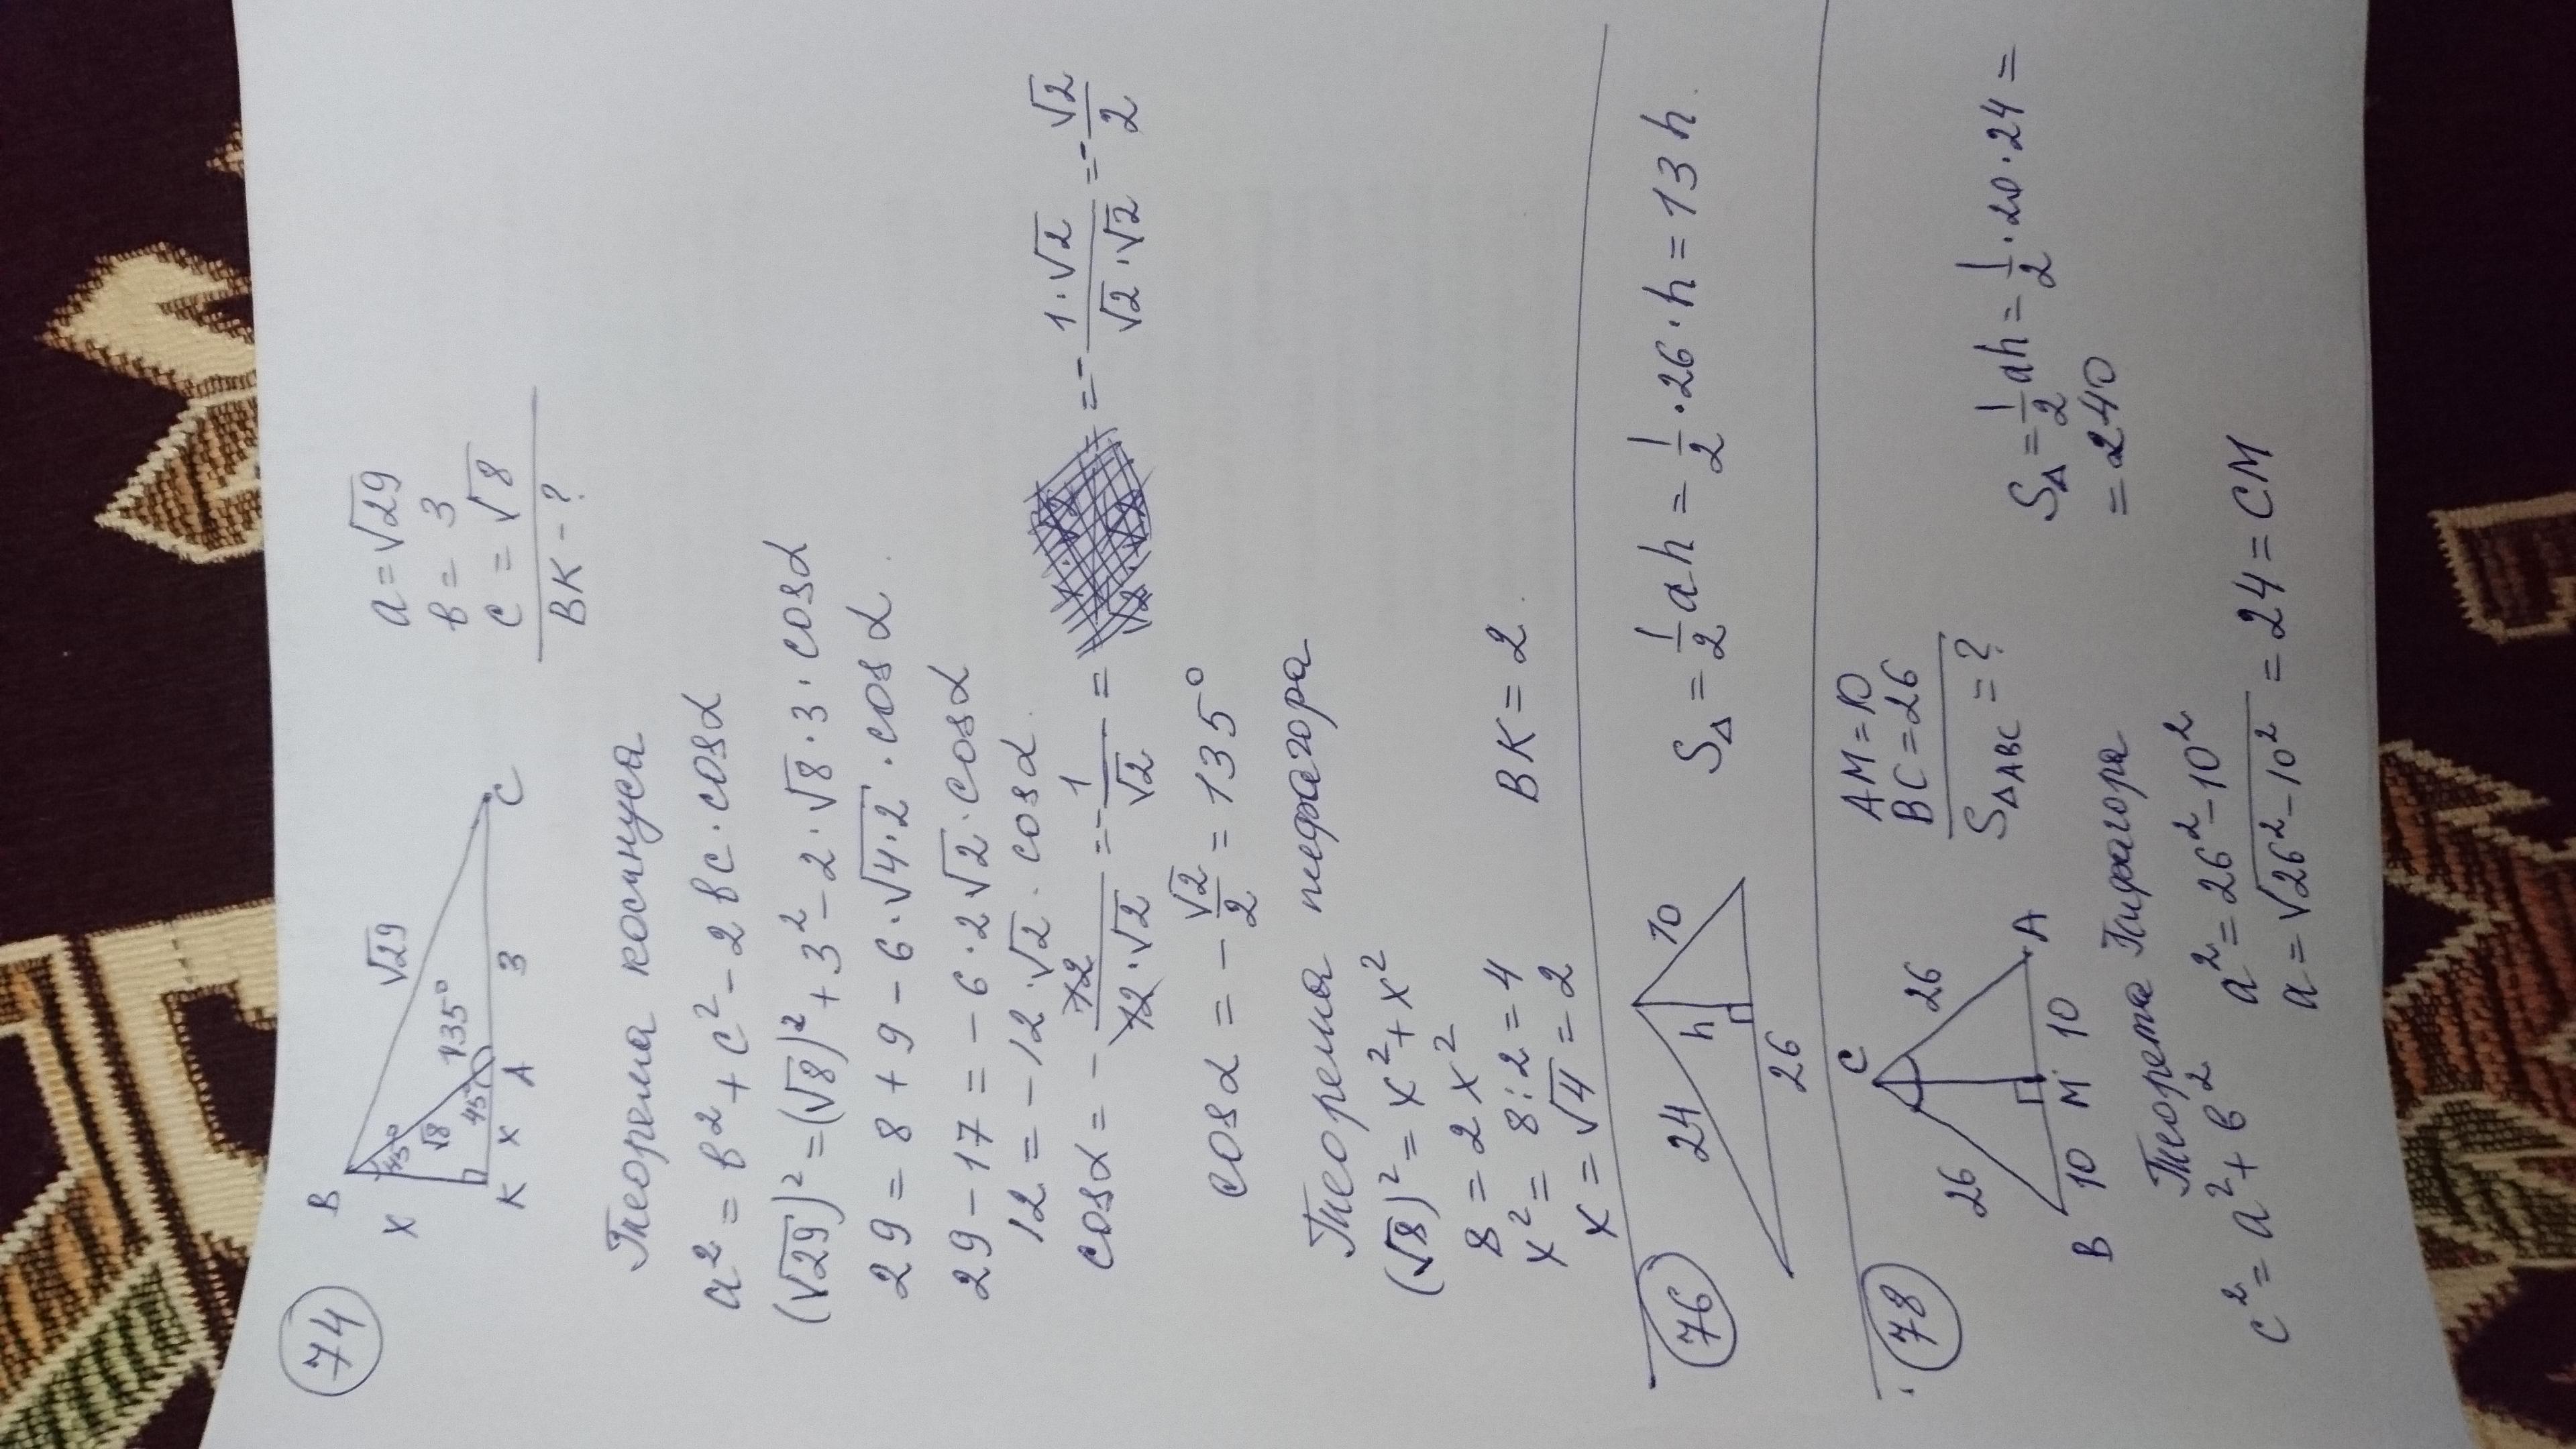 74
B
x
45°
√8
45°
K
x
A
135°
3
√29
C
a = √29
в = 3
c = √8
BK - ?
Теорема косинуса
a² = в² + c² - 2вc · cosα
(√29)² = (√8)² + 3² - 2 · √8 · 3 · cosα
29 = 8 + 9 - 6 · √4·2 · cosα.
29 - 17 = - 6 · 2√2 · cosα
12 = - 12 · √2 · cosα.
cosα = - 12/12·√2 = - 1/√2 = = - 1·√2/√2·√2 = - √2/2
cosα = - √2/2 = 135°
Теорема пифагора
(√8)² = x² + x²
8 = 2x²
x² = 8 : 2 = 4
x = √4 = 2
BK = 2.
76
24
h
10
26
S△ = 1/2 ah = 1/2 · 26 · h = 13 h.
78
C
26
26
B
10
M
10
A
AM = 10
BC = 26
S△ABC = ?
S△ = 1/2 ah = 1/2 · 20 · 24 =
= 240
Теорема Пифагора
c² = a² + в²
a² = 26² - 10²
a = √26² - 10² = 24 = CM